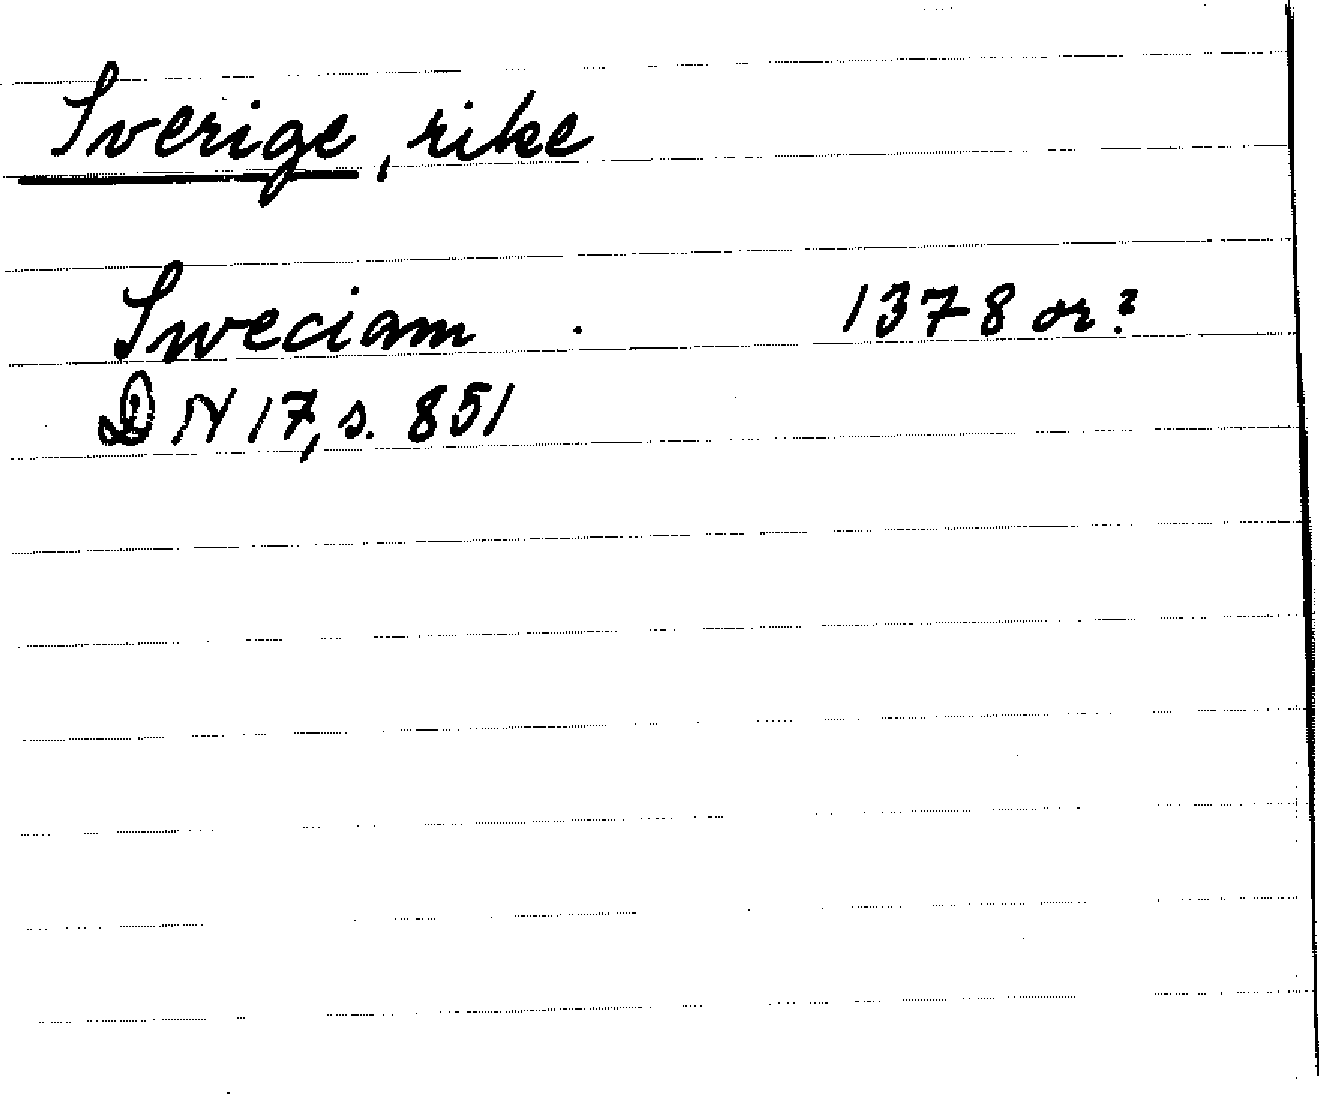 Sverige, rike
Sweciam . 1378 or?
DN 17, s. 851